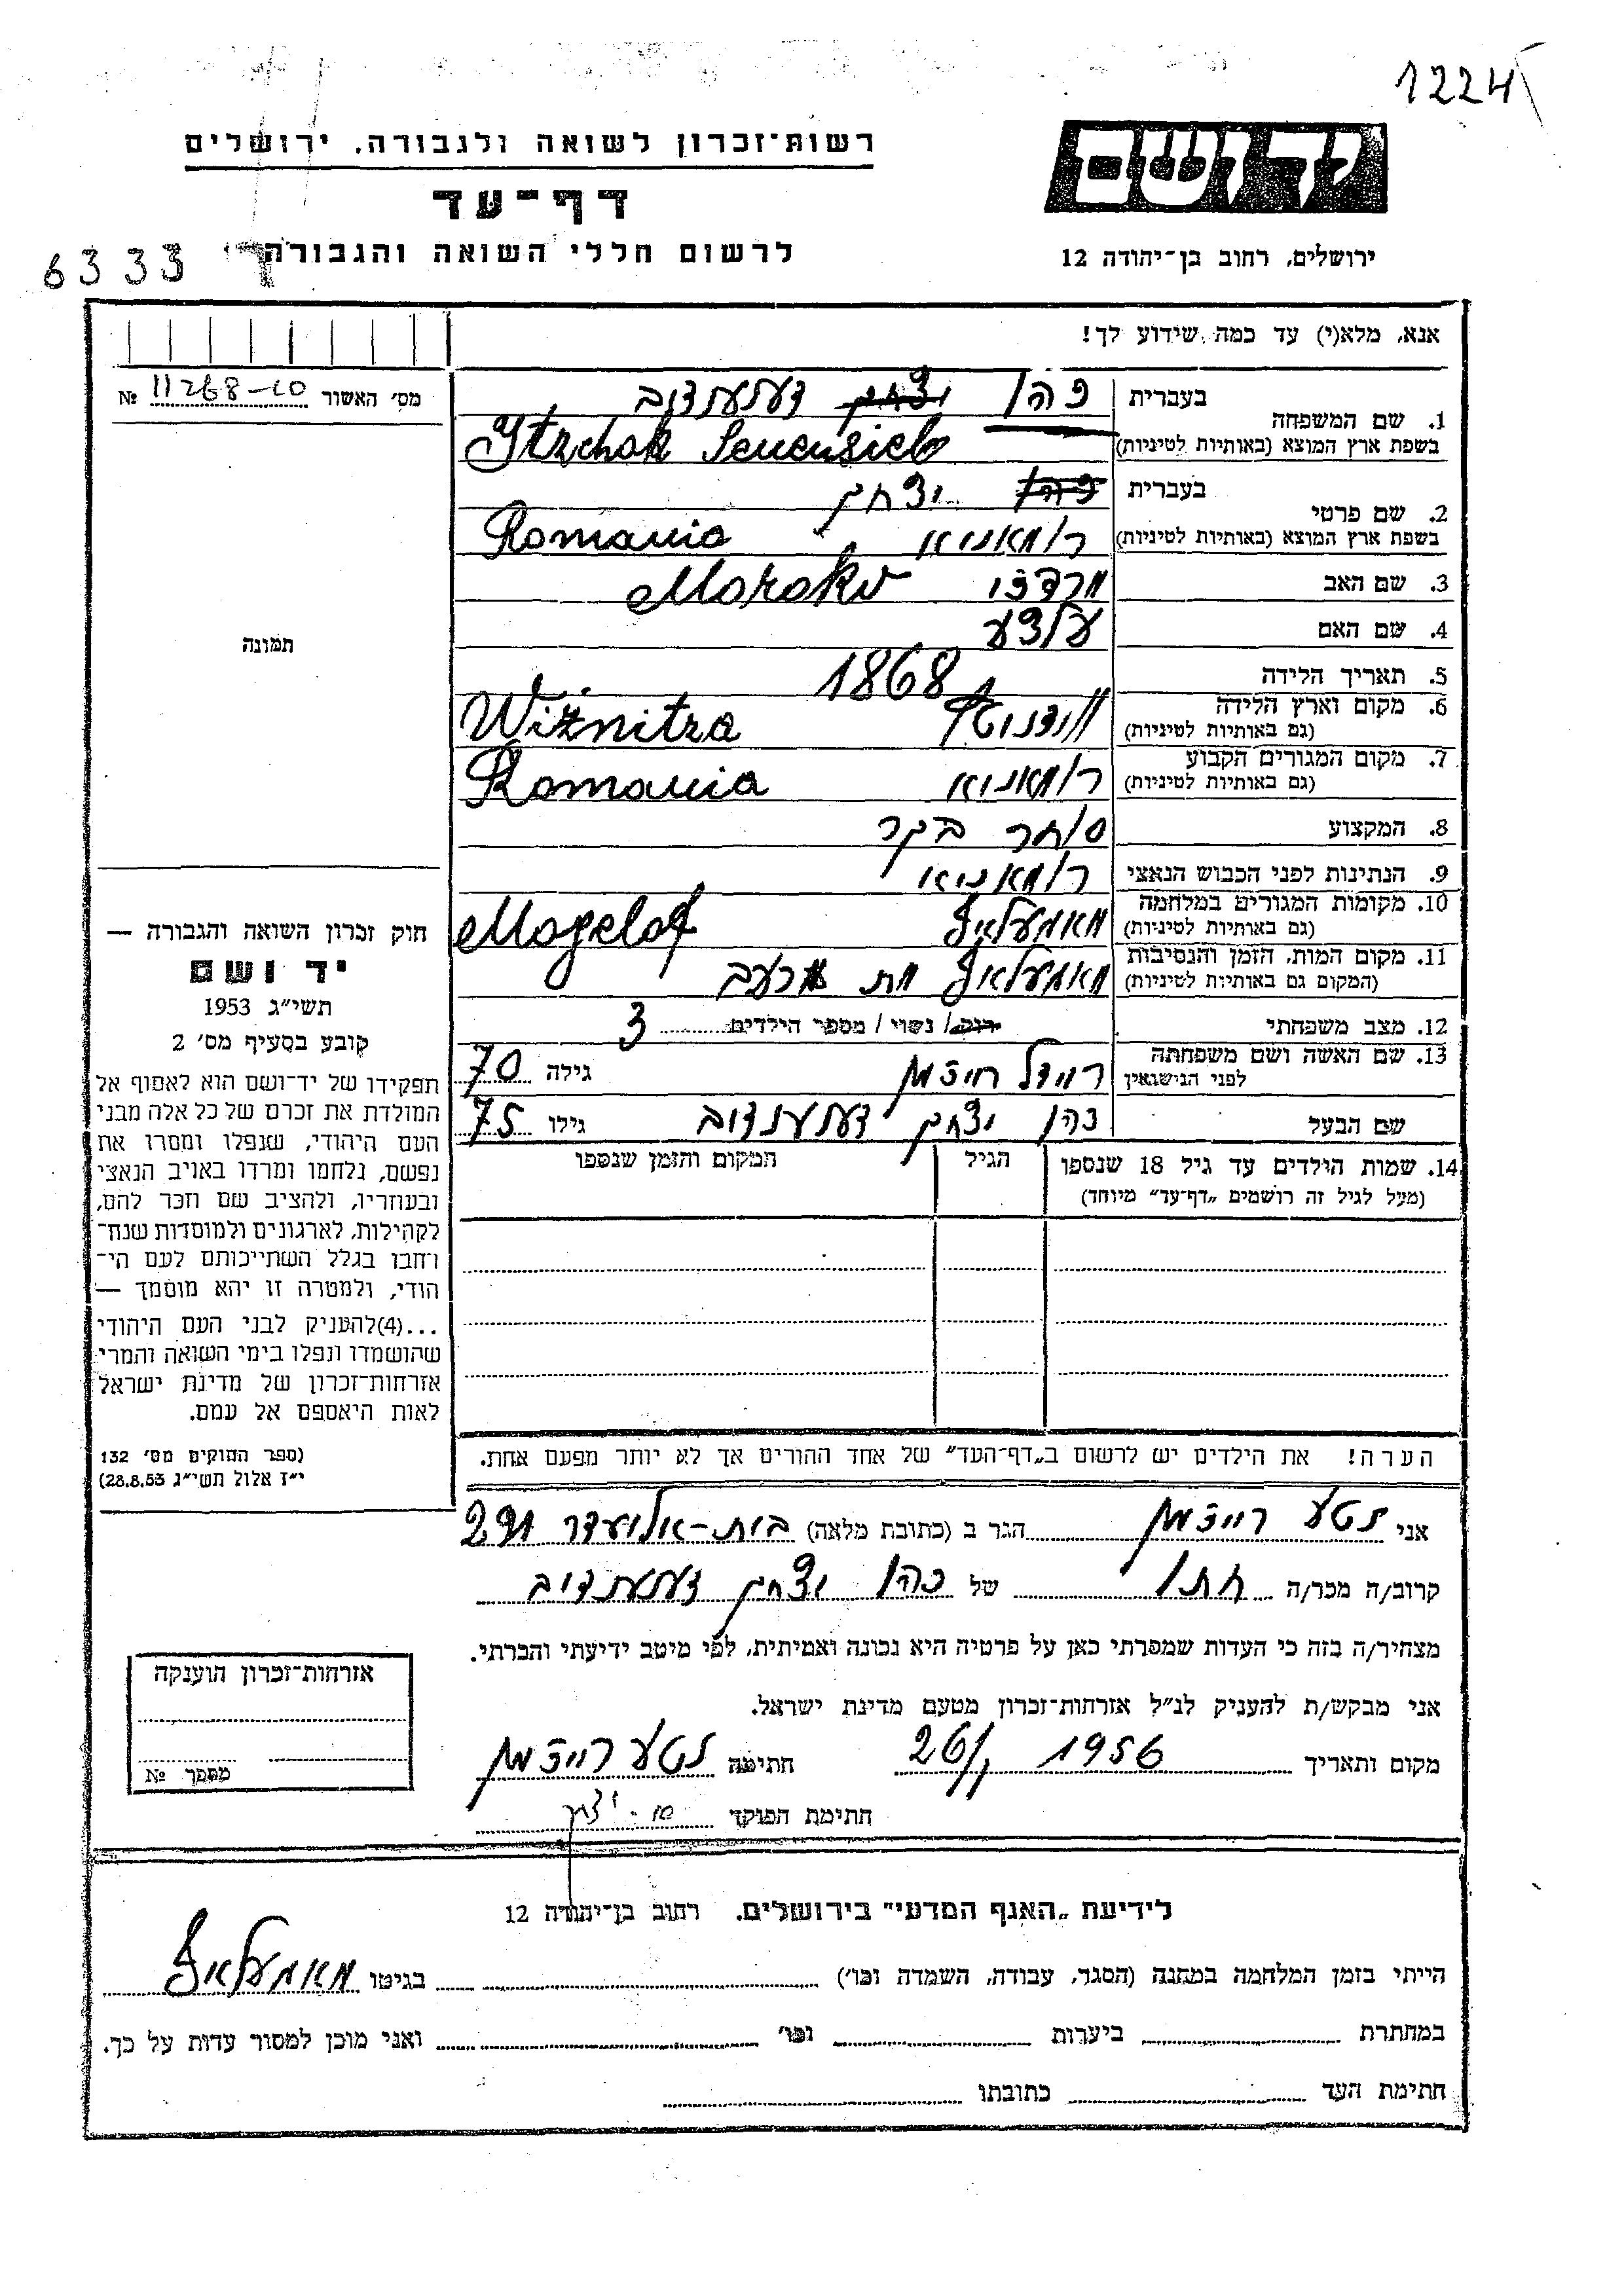 1224
רשות־זכרון לשואה ולגבורה, ירושלים
יד ושם
דף־עד
לרשום חללי השואה והגבורה
ירושלים, רחוב בן־יהודה 12
6333
אנא, מלא(י) עד כמה שידוע לך!
מס' האשור № 11268-10
1. שם המשפחה
בעברית כהן יצחק
בשפת ארץ המוצא (באותיות לטיניות) Itzchak
2. שם פרטי
בעברית כהן יצחק
בשפת ארץ המוצא (באותיות לטיניות) ראמאניא Romania
3. שם האב מרדכי
4. שם האם
5. תאריך הלידה 1868
6. מקום וארץ הלידה
(גם באותיות לטיניות) Wiżnitza
7. מקום המגורים הקבוע
(גם באותיות לטיניות) ראמאניא Romania
8. המקצוע סוחר בקר
9. הנתינות לפני הכבוש הנאצי ראמאניא
10. מקומות המגורים במלחמה
(גם באותיות לטיניות) מאגעלאף Mogelof
11. מקום המות, הזמן והנסיבות
(המקום גם באותיות לטיניות) מאגעלאף מת מרעב
12. מצב משפחתי רוק / נשוי / מספר הילדים 3
13. שם האשה ושם משפחתה
לפני הנישואין רייזמן גילה 70
שם הבעל כהן יצחק גילו 75
14. שמות הילדים עד גיל 18 שנספו
(מעל לגיל זה רושמים „דף־עד" מיוחד)
הגיל
המקום והזמן שנספו
תמונה
חוק זכרון השואה והגבורה —
יד ושם
תשי"ג 1953
קובע בסעיף מס' 2
תפקידו של יד־ושם הוא לאסוף אל
המולדת את זכרם של כל אלה מבני
העם היהודי, שנפלו ומסרו את
נפשם, נלחמו ומרדו באויב הנאצי
ובעוזריו, ולהציב שם וזכר להם,
לקהילות, לארגונים ולמוסדות שנח־
רבו בגלל השתייכותם לעם הי־
הודי, ולמטרה זו יהא מוסמך —
...(4) להעניק לבני העם היהודי
שהושמדו ונפלו בימי השואה והמרי
אזרחות־זכרון של מדינת ישראל
לאות היאספם אל עמם.
(ספר החוקים מס' 132
י"ז אלול תשי"ג 28.8.53)
הערה! את הילדים יש לרשום ב„דף־העד" של אחד ההורים אך לא יותר מפעם אחת.
אני נטע רייזמן הגר ב (כתובת מלאה) בית-אליעזר 291
קרוב/ה מכר/ה חתן של כהן יצחק
מצהיר/ה בזה כי העדות שמסרתי כאן על פרטיה היא נכונה ואמיתית, לפי מיטב ידיעתי והכרתי.
אני מבקש/ת להעניק לנ"ל אזרחות־זכרון מטעם מדינת ישראל.
מקום ותאריך 1956 חתימה נטע רייזמן
חתימת הפוקד
אזרחות־זכרון הוענקה
מספר №
לידיעת „האגף המדעי" בירושלים. רחוב בן־יהודה 12
הייתי בזמן המלחמה במחנה (הסגר, עבודה, השמדה וכו') בגיטו מאגעלאף
במחתרת ביערות וכו' ואני מוכן למסור עדות על כך.
חתימת העד כתובתו